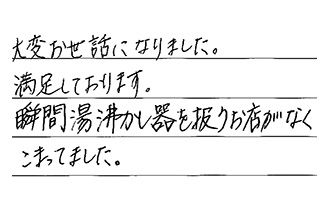 大変お世話になりました。
満足しております。
瞬間湯沸かし器を扱うお店がなく
こまってました。